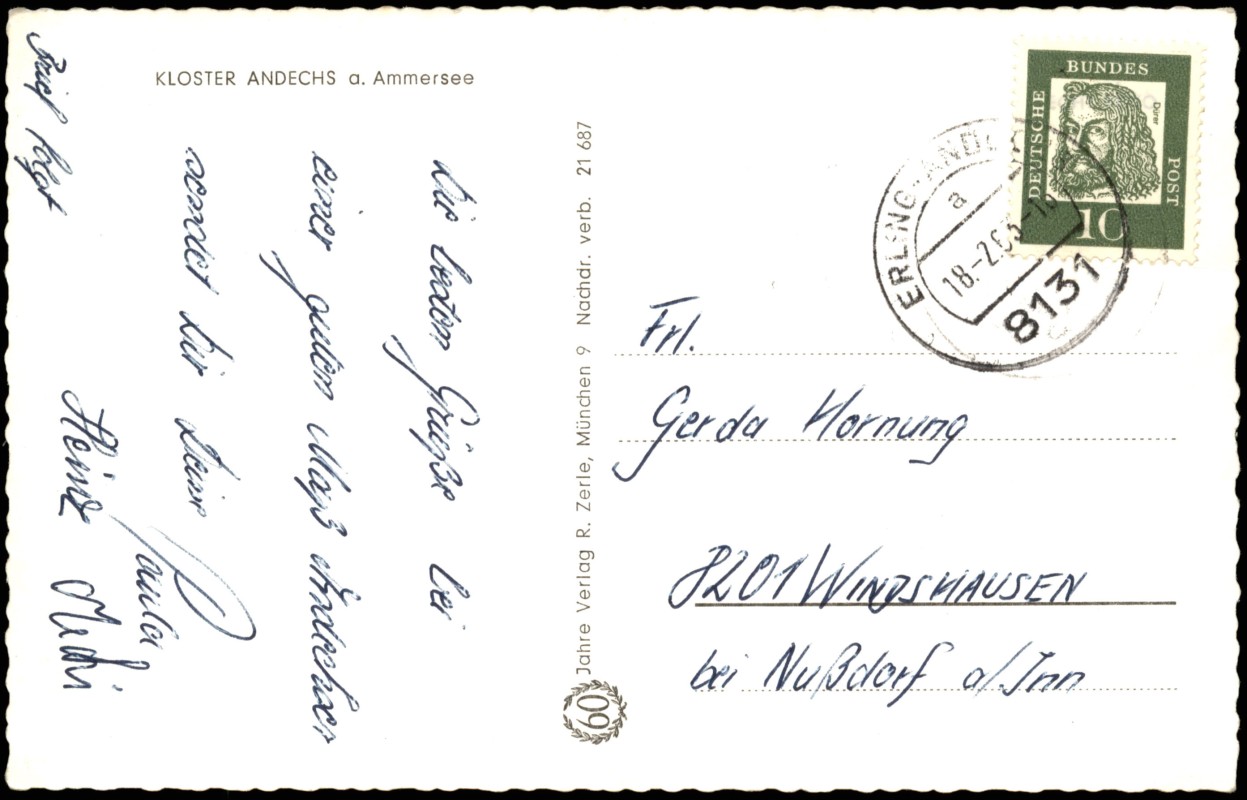 KLOSTER ANDECHS a. Ammersee
Die besten Grüße bei
einer guten Maß Andechser
sendet Dir Deine
Paula
Heinz
Brief folgt
60 Jahre Verlag R. Zerle, München 9 Nachdr. verb. 21 687
DEUTSCHE BUNDES POST
Dürer
10
ERLING-AND
a
18.-2.63-1
8131
Frl.
Gerda Hornung
8201 WINDSHAUSEN
bei Nußdorf a/Inn